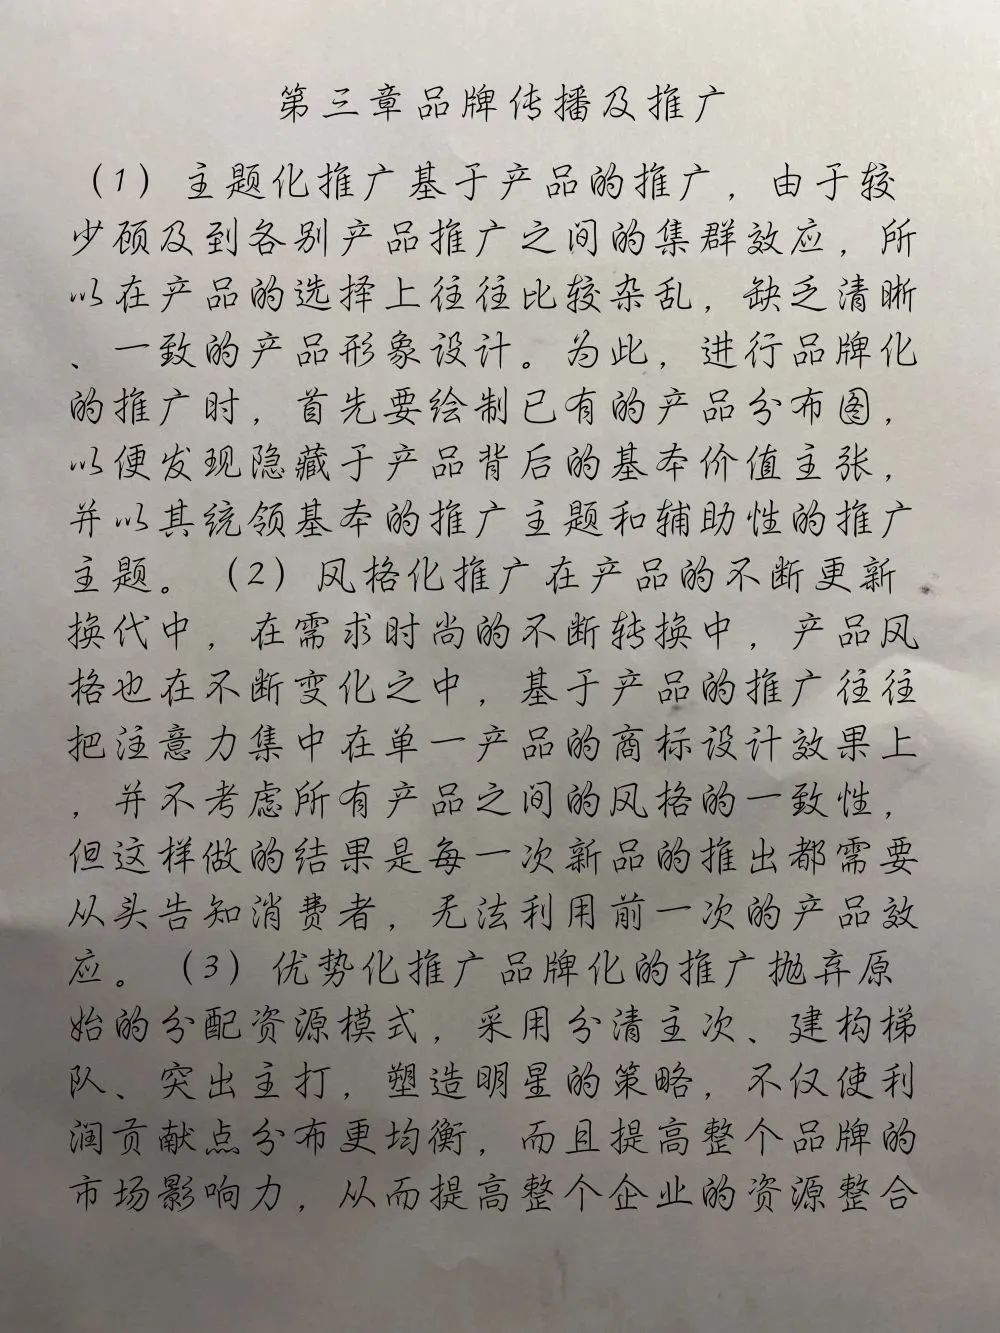 第三章品牌传播及推广
（1）主题化推广基于产品的推广，由于较
少顾及到各别产品推广之间的集群效应，所
以在产品的选择上往往比较杂乱，缺乏清晰
、一致的产品形象设计。为此，进行品牌化
的推广时，首先要绘制已有的产品分布图，
以便发现隐藏于产品背后的基本价值主张，
并以其统领基本的推广主题和辅助性的推广
主题。（2）风格化推广在产品的不断更新
换代中，在需求时尚的不断转换中，产品风
格也在不断变化之中，基于产品的推广往往
把注意力集中在单一产品的商标设计效果上
，并不考虑所有产品之间的风格的一致性，
但这样做的结果是每一次新品的推出都需要
从头告知消费者，无法利用前一次的产品效
应。（3）优势化推广品牌化的推广抛弃原
始的分配资源模式，采用分清主次、建构梯
队、突出主打，塑造明星的策略，不仅使利
润贡献点分布更均衡，而且提高整个品牌的
市场影响力，从而提高整个企业的资源整合